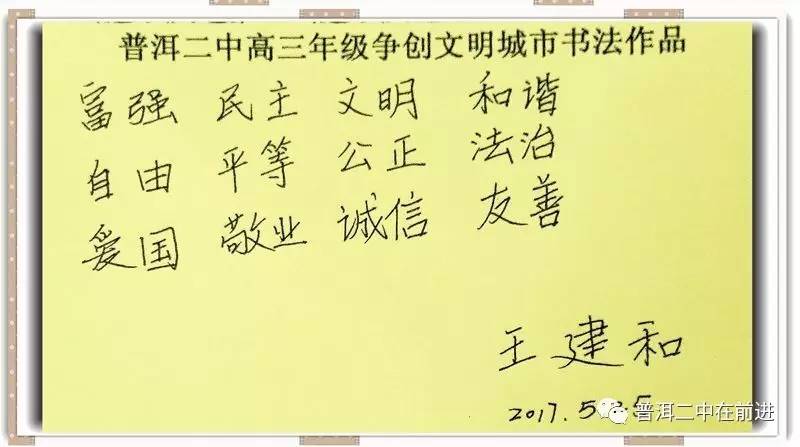 普洱二中高三年级争创文明城市书法作品
富强 民主 文明 和谐
自由 平等 公正 法治
爱国 敬业 诚信 友善
王建和
2017.5.
普洱二中在前进